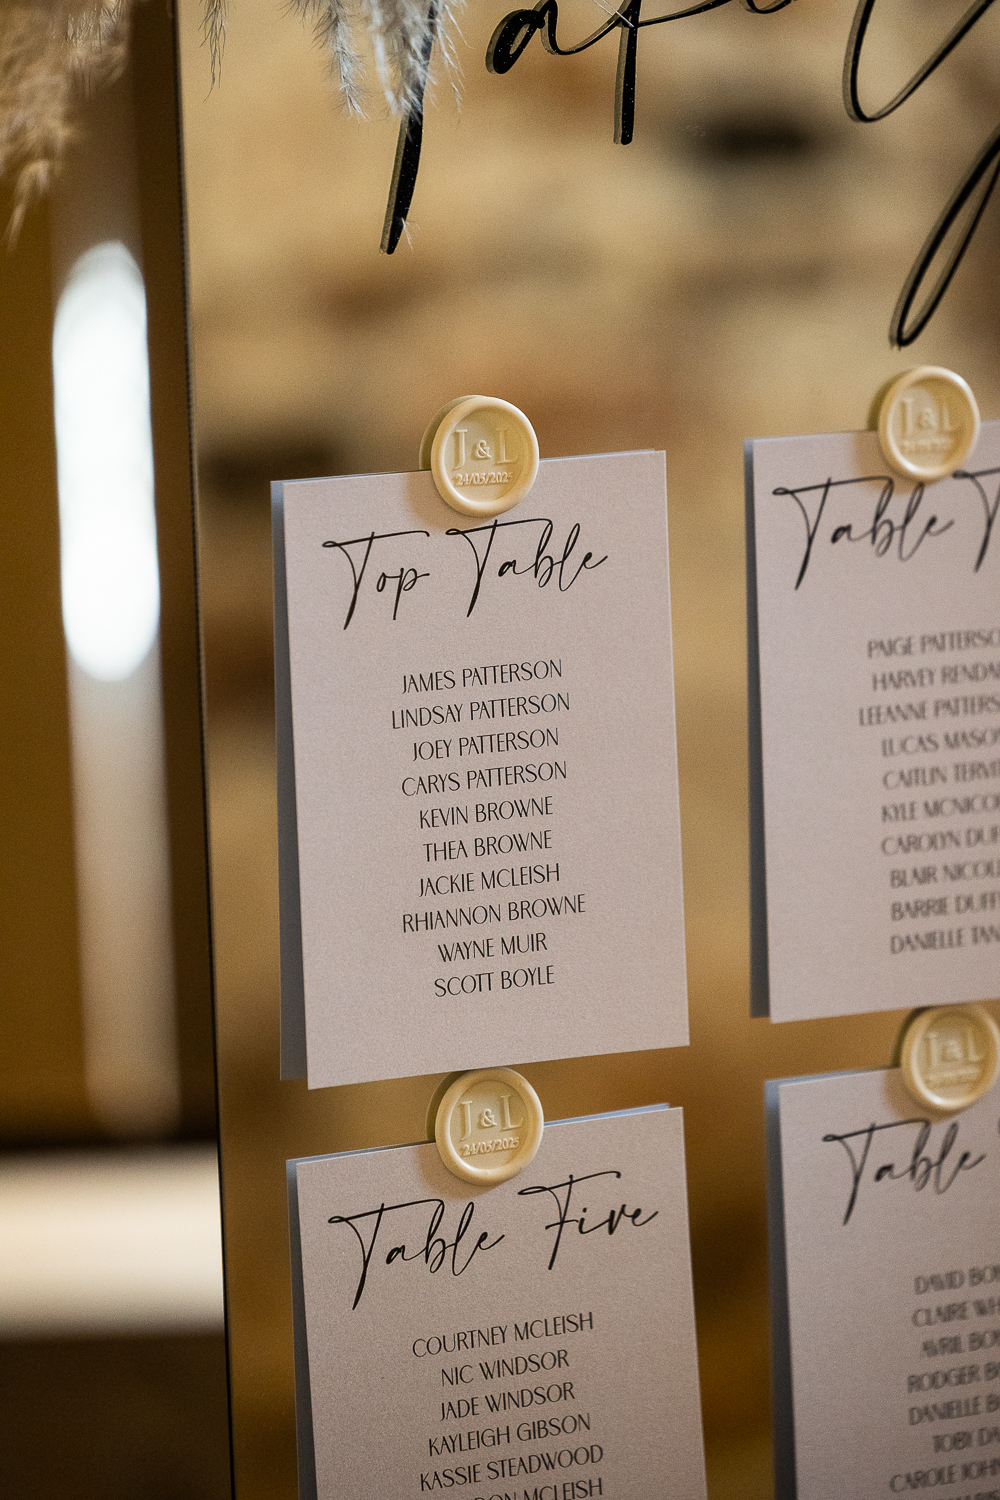 J & L
24/03/2025
Top Table
JAMES PATTERSON
LINDSAY PATTERSON
JOEY PATTERSON
CARYS PATTERSON
KEVIN BROWNE
THEA BROWNE
JACKIE MCLEISH
RHIANNON BROWNE
WAYNE MUIR
SCOTT BOYLE
J & L
Table
PAIGE
HARVEY
LEEANNE
LUCAS
CAITLIN
KYLE
CAROLYN
BLAIR
BARRIE
DANIELLE
J & L
24/03/2025
Table Five
COURTNEY MCLEISH
NIC WINDSOR
JADE WINDSOR
KAYLEIGH GIBSON
KASSIE STEADWOOD
MCLEISH
J & L
Table
DAVID
CLAIRE
AVRIL
RODGER
DANIELLE
TOBY
CAROLE